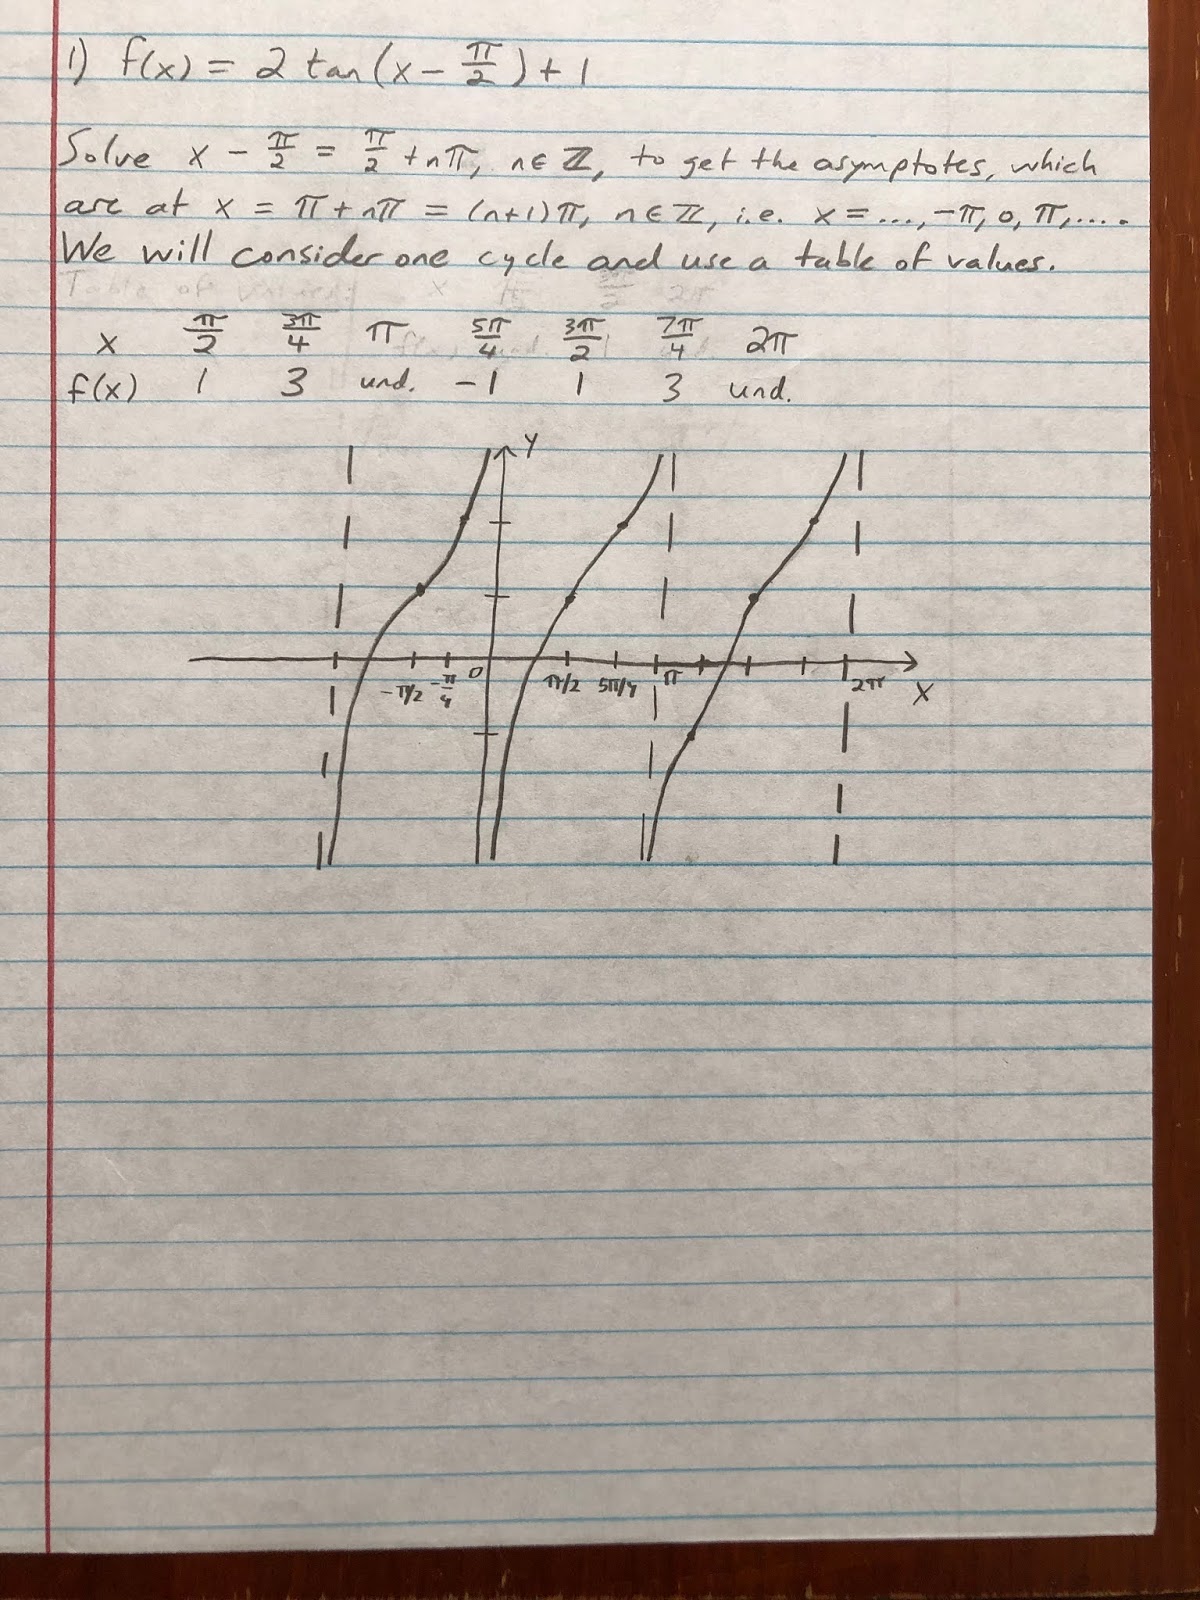 1) f(x) = 2 tan(x − π/2) + 1
Solve x − π/2 = π/2 + nπ, n∈ℤ, to get the asymptotes, which
are at x = π + nπ = (n+1)π, n∈ℤ, i.e. x = ..., −π, 0, π, ....
We will consider one cycle and use a table of values.
Table of values: x
x π/2 3π/4 π 5π/4 3π/2 7π/4 2π
f(x) 1 3 und. −1 1 3 und.
y
−π/2 −π/4 0 π/2 5π/4 π 2π
x